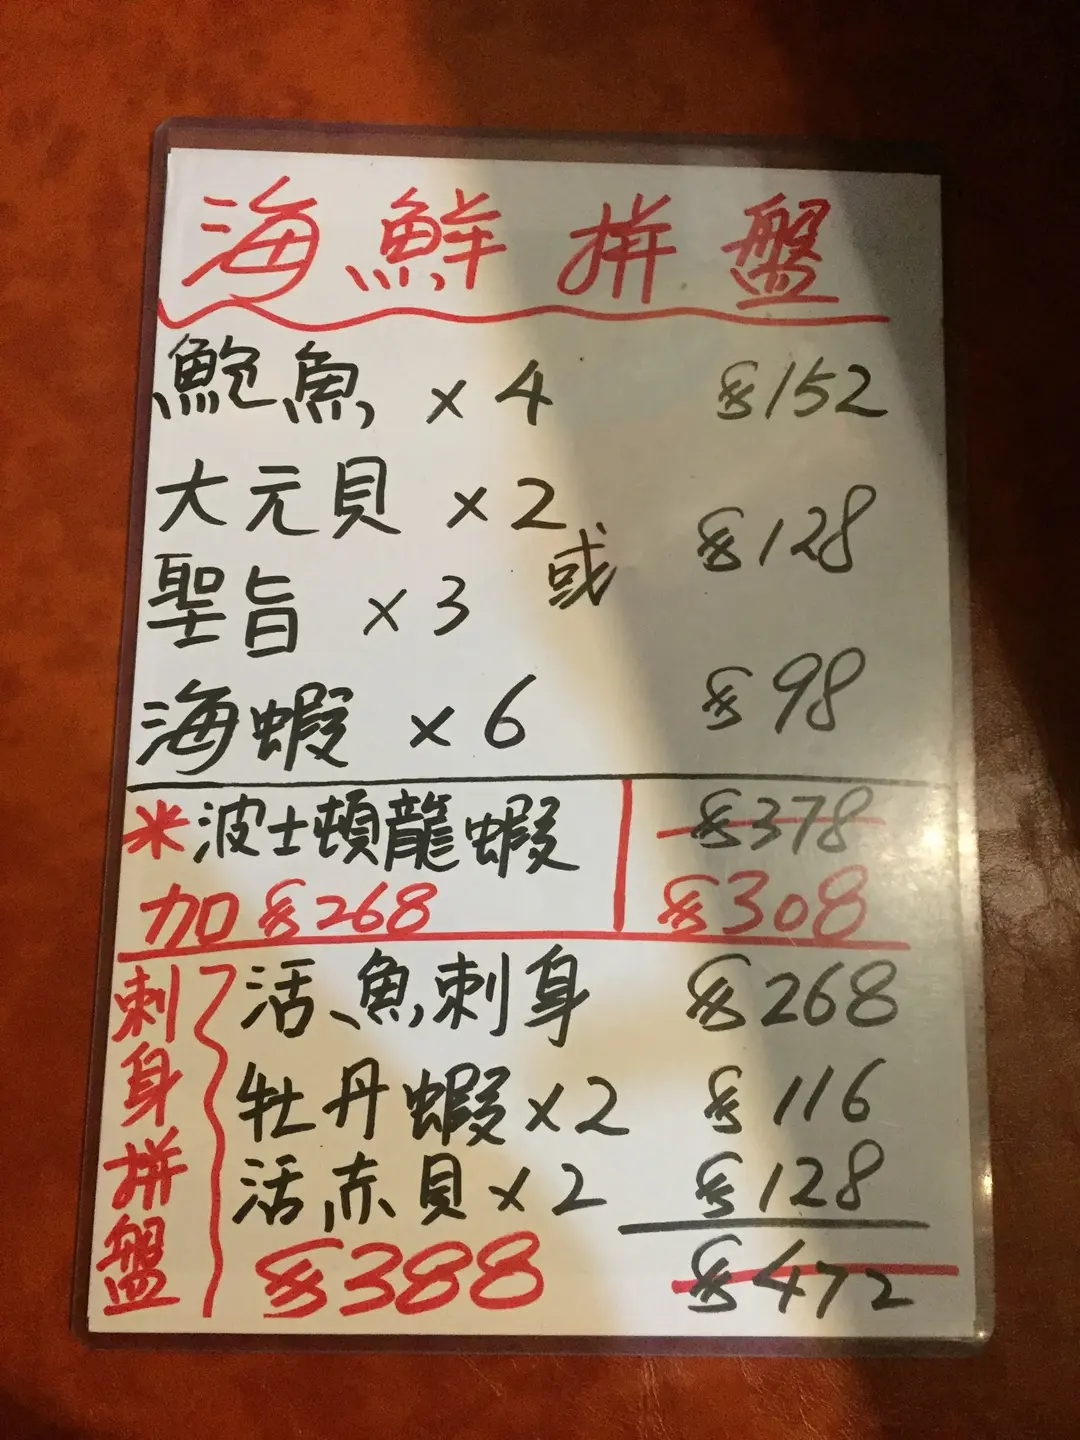 海鮮拼盤
鮑魚 x 4 $152
大元貝 x 2 $128
或
聖旨 x 3
海蝦 x 6 $98
米波士頓龍蝦 $378
加 $268 $308
刺身拼盤
活魚刺身 $268
牡丹蝦 x 2 $116
活赤貝 x 2 $128
$388 $472